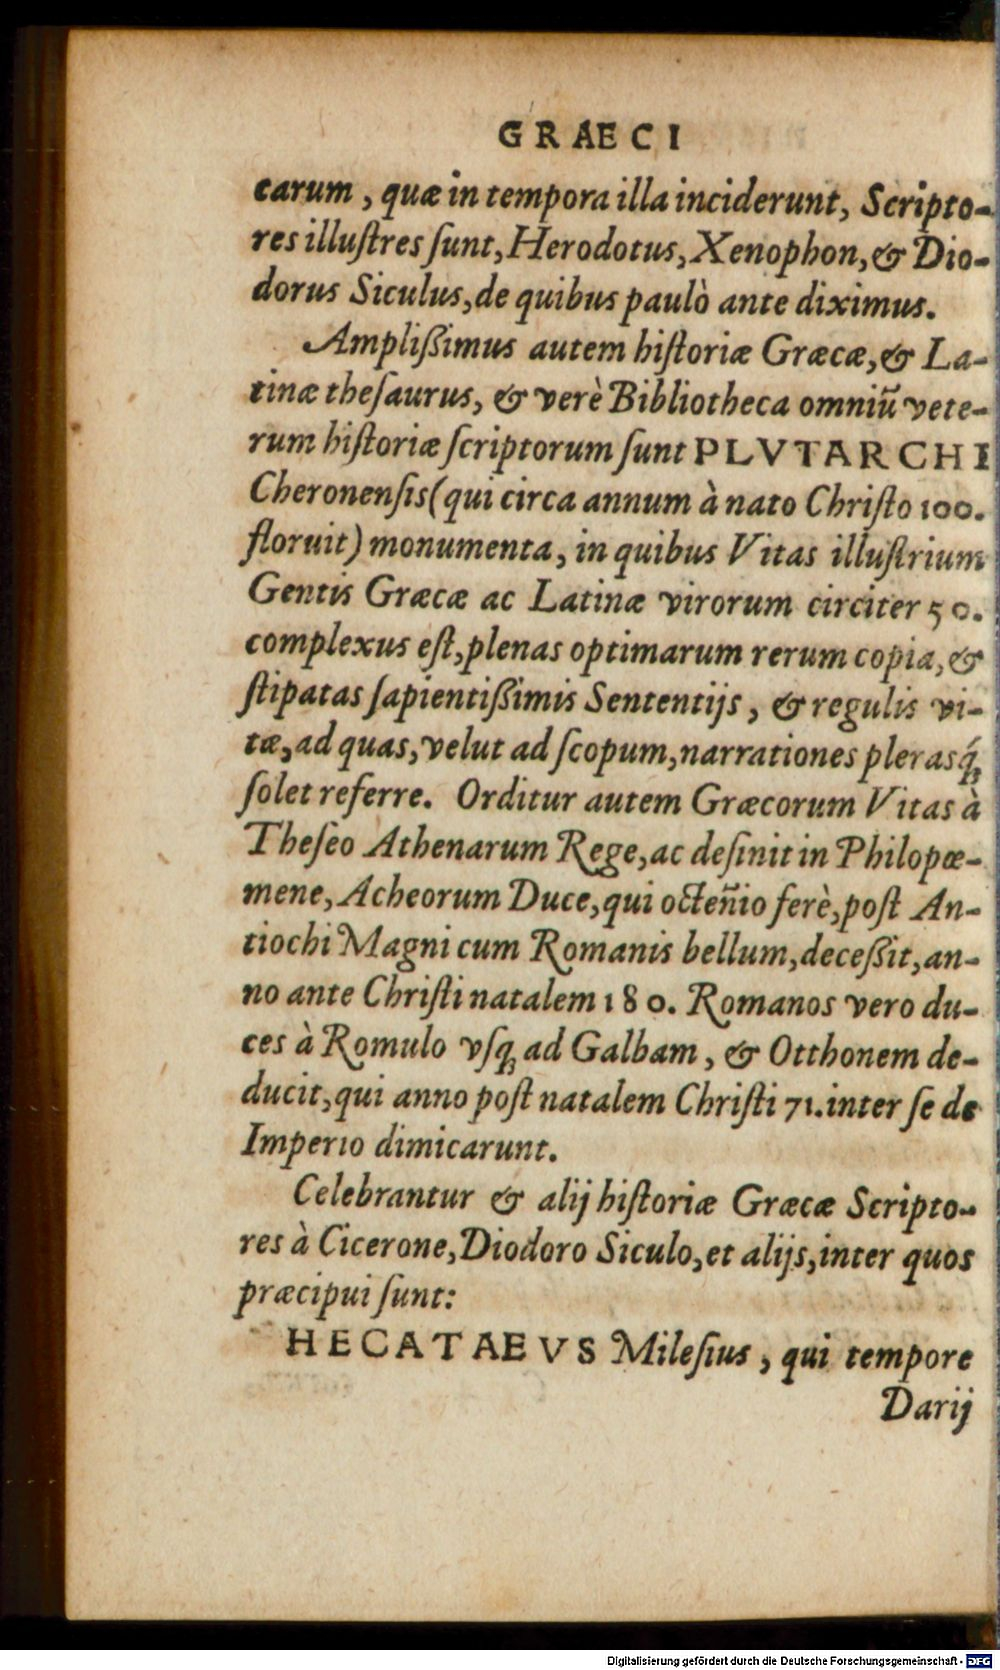 GRAECI
carum, quæ in tempora illa inciderunt, Scripto-
res illuſtres ſunt, Herodotus, Xenophon, & Dio-
dorus Siculus, de quibus paulò ante diximus.
Ampliſsimus autem hiſtoriæ Græcæ, & La-
tinæ theſaurus, & verè Bibliotheca omniũ vete-
rum hiſtoriæ ſcriptorum ſunt PLVTARCHI
Cheronenſis (qui circa annum à nato Chriſto 100.
floruit) monumenta, in quibus Vitas illuſtrium
Gentis Græcæ ac Latinæ virorum circiter 50.
complexus eſt, plenas optimarum rerum copia, &
ſtipatas ſapientiſsimis Sententijs, & regulis vi-
tæ, ad quas, velut ad ſcopum, narrationes plerasq́;
ſolet referre. Orditur autem Græcorum Vitas à
Theſeo Athenarum Rege, ac deſinit in Philopœ-
mene, Acheorum Duce, qui octẽnio ferè, poſt An-
tiochi Magni cum Romanis bellum, deceſsit, an-
no ante Chriſti natalem 180. Romanos vero du-
ces à Romulo vſq; ad Galbam, & Otthonem de-
ducit, qui anno poſt natalem Chriſti 71. inter ſe de
Imperio dimicarunt.
Celebrantur & alij hiſtoriæ Græcæ Scripto-
res à Cicerone, Diodoro Siculo, et alijs, inter quos
præcipui ſunt:
HECATAEVS Mileſius, qui tempore
Darij
Digitalisierung gefördert durch die Deutsche Forschungsgemeinschaft - DFG